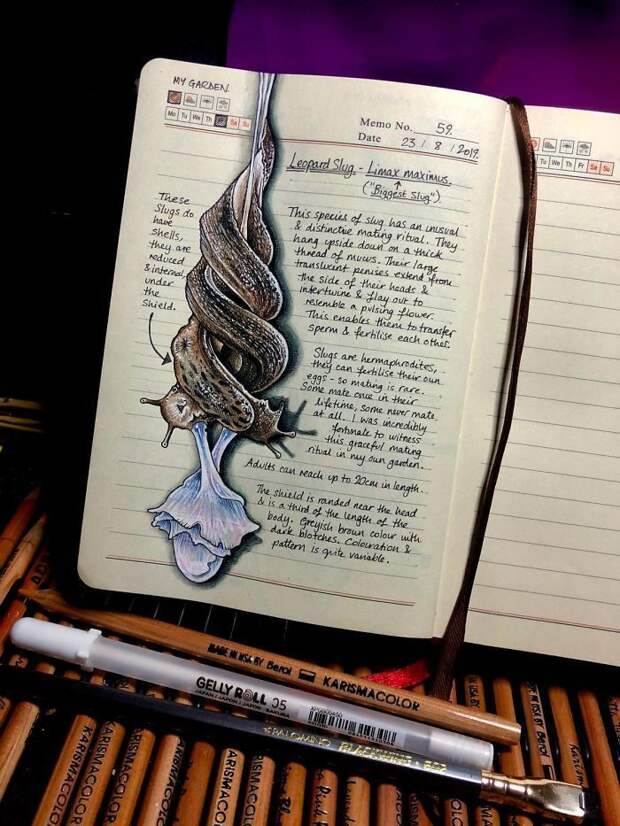 MY GARDEN
Mo Tu We Th Fr Sa Su
Memo No. 59.
Date 23 / 8 / 2019.
Leopard Slug - Limax maximus.
("Biggest Slug")
These
Slugs do
have
shells,
they are
reduced
& internal,
under
the
Shield.
This species of slug has an unusual
& distinctive mating ritual. They
hang upside down on a thick
thread of mucus. Their large
translucent penises extend from
the side of their heads &
intertwine & flay out to
resemble a pulsing flower.
This enables them to transfer
sperm & fertilise each other.
Slugs are hermaphrodites,
they can fertilise their own
eggs - so mating is rare.
Some mate once in their
lifetime, some never mate
at all. I was incredibly
fortunate to witness
this graceful mating
ritual in my own garden.
Adults can reach up to 20cm in length.
The shield is rounded near the head
& is a third of the length of the
body. Greyish brown colour with
dark blotches. Colouration &
pattern is quite variable.
Tu We Th Fr Sa Su
MADE IN USA BY Berol KARISMACOLOR
GELLY ROLL 05
JAPAN / JAPON / JAPÓN SAKURA
PALOMINO BLACKWING 602
KARISMACOLOR
KARISMACOLOR
KARISMACOLOR
KARISMACOLOR
ARISMACOLOR
ARISMACOLOR